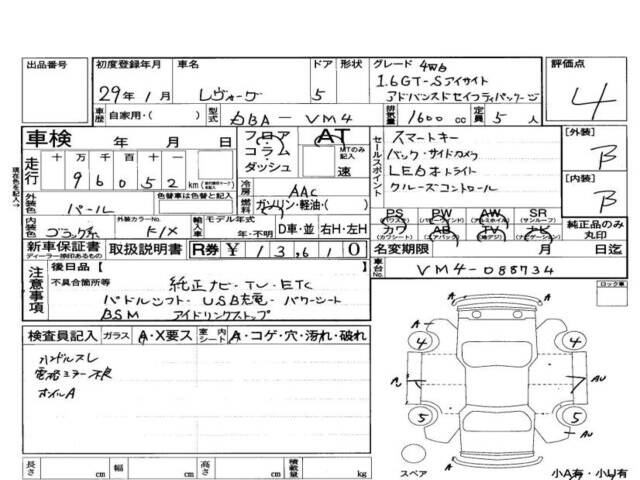 出品番号
初度登録年月 29年1月
車名 レヴォーグ
ドア 5
形状
グレード 4WD
1.6GT-Sアイサイト
アドバンスドセイフティパッケージ
評価点 4
車歴 自家用・( )
型式 DBA-VM4
排気量 1600 cc
定員 5人
車検 年 月 日
フロア・コラム・ダッシュ
AT
MTのみ記入
速
走行 十万千百十一
96052 km
冷房 AAC
燃料 ガソリン・軽油・( )
セールスポイント
スマートキー
バック・サイドカメラ
LEDライト
クルーズコントロール
[外装] B
[内装] B
現在色を記入→
外装色 パール
色替え車は外装色と色替と記入
内装色 ブラック系
外装カラーNo. K1X
輸入車
モデル年式
年・不明
D車・並
右H・左H
PS (パワステ)
PW (パワーウインド)
AW (アルミホイル)
SR (サンルーフ)
カワ (カワシート)
AB (エアバック)
TV (地デジ)
ナビ (ナビゲーション)
純正品のみ丸印
新車保証書
ディーラー捺印あるもの
取扱説明書
R券 ¥13,610
名変期限 月 日迄
車台No. VM4-088734
注意事項
後日品[ ]
不具合箇所等
純正ナビ・TV・ETC
パドルシフト・USB充電・パワーシート
BSM アイドリングストップ
ロック車
検査員記入
ガラス A・X要ス
室内シート A・コゲ・穴・汚れ・破れ
ハンドルスレ
電格ミラー不良
ホイルA
A
A
4
4
AU
5
5
AU
A
A
スペア
小A有・小U有
長さ cm
幅 cm
高さ cm
積載量 kg